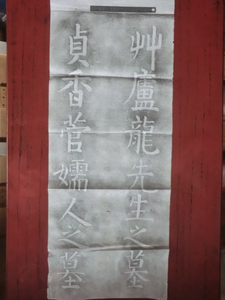 艸廬龍先生之墓
貞香菅孺人之墓